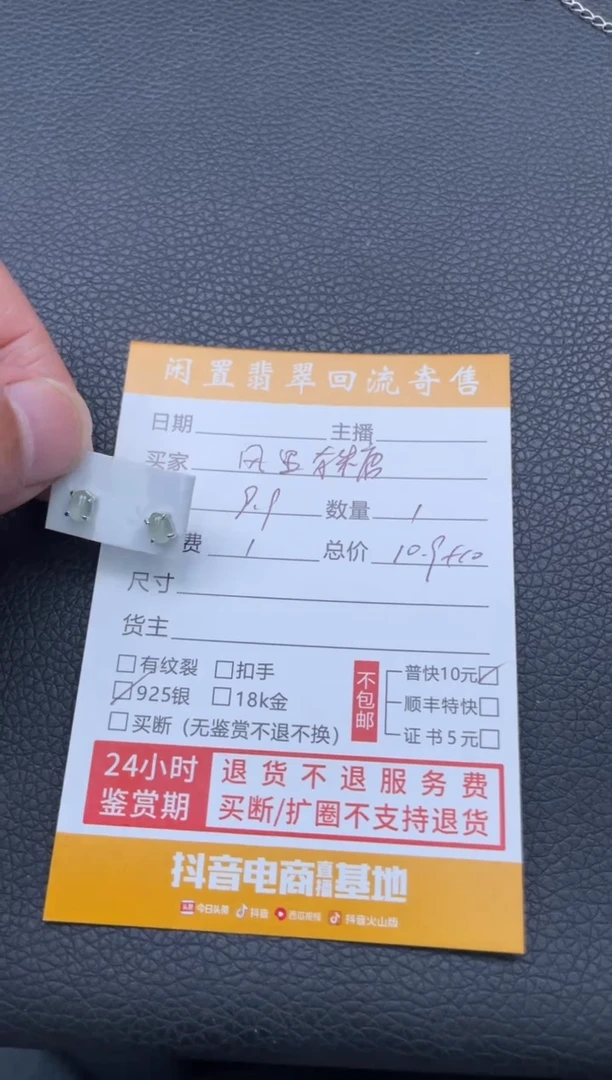 闲置翡翠回流寄售
日期 主播
买家
9.9 数量 1
费 1 总价 10.9+10
尺寸
货主
有纹裂 扣手
925银 18k金
买断(无鉴赏不退不换)
不包邮
普快10元
顺丰特快
证书5元
24小时
鉴赏期
退货不退服务费
买断/扩圈不支持退货
抖音电商直播基地
头条 今日头条 抖音 西瓜视频 抖音火山版